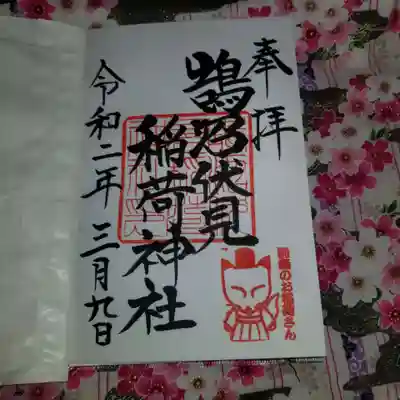 奉拝
鵠沼伏見
稲荷神社
令和二年 三月九日
鵠沼のお稲荷さん